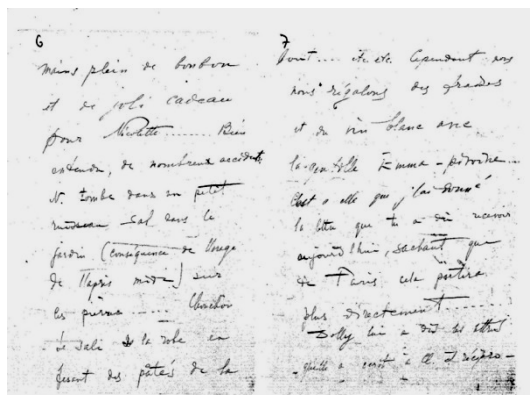 6
mains plein de bonbon
et de joli cadeau
pour Nicolette ........ Bien
entendu, de nombreux accidents
N. tombe dans un petit
ruisseau sal dans le
jardin (conséquence de l'orage
de l'après midi) sur
les pierres ......
se sali la robe en
fesant des pâtés de la
7
Pont .... etc etc. Cependant nous
nous régalons des
et du vin blanc avec
la gentille Emma
C'est a elle que j'ai donné
la lettre que tu a dû recevoir
aujourd'hui, sachant que
de Paris cela partira
plus directement ..........
Dolly lui a dit les